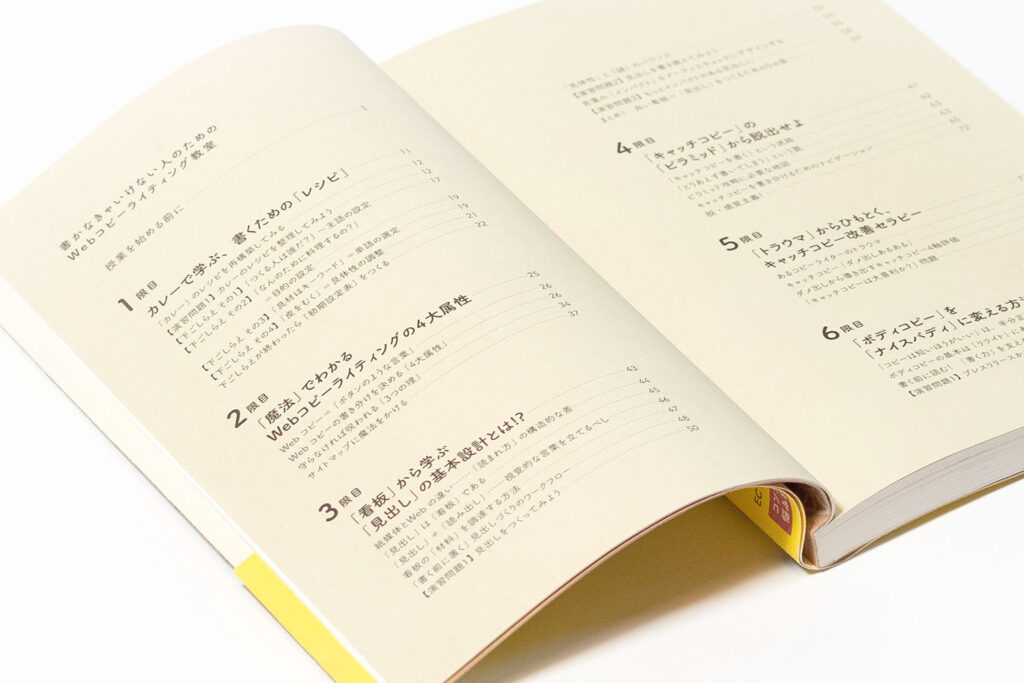 書かなきゃいけない人のための
Webコピーライティング教室
授業を始める前に 2
1限目
カレーで学ぶ、書くための「レシピ」 11
「カレー」のレシピを再構築してみる 12
【演習問題1】カレーのレシピを整理してみよう 12
【下ごしらえ その1】「つくる人は誰だ?」=主語の設定 17
【下ごしらえ その2】「なんのために料理するの?」
=目的の設定 19
【下ごしらえ その3】「具材はキーワード」=単語の選定 19
【下ごしらえ その4】「皮をむく」=具体性の調整 21
下ごしらえが終わったら「初期設定表」をつくる 22
2限目
「魔法」でわかる
Webコピーライティングの4大属性 25
Webコピー=「ボタンのような言葉」 26
Webコピーの書き分けを決める「4大属性」 26
守らなければ呪われる「3つの理」 34
サイトマップに魔法をかける 37
3限目
「看板」から学ぶ
「見出し」の基本設計とは!? 43
紙媒体とWebの違い……「読まれ方」の構造的な差 44
「見出し」は「看板」である 45
「見出し」≠「読み出し」……視覚的な言葉を立てるべし 46
看板の「材料」を調達する方法 47
「書く前に置く」見出しづくりのワークフロー 48
【演習問題1】見出しをつくってみよう 50
「具体性」と「謎」のバランス
【演習問題2】見出しを書き換えてみよう
言葉の「インパクト」をアーティスティックにデザインする
【演習問題3】もっとインパクトのある見出しに
まとめ! 良い看板=「見出し」をつくるための
4限目
「キャッチコピー」の
「ピラミッド」から脱出せよ 61
「キャッチコピーを書く」という迷洞 62
「とりあえず書いてみよう」という罠 63
ピラミッド攻略に必要な地図 63
キャッチコピーを書き分けるためのナビゲーション 65
脱・感覚主義! 72
5限目
「トラウマ」からひもとく、
キャッチコピー改善セラピー
あるコピーライターのトラウマ
キャッチコピー「ダメ出しあるある」
ダメ出しから導き出すキャッチコピー4軸評価
「キャッチコピーは大喜利か?」問題
6限目
「ボディコピー」を
「ナイスバディ」に変える方
「コピーは短いほうがいい」は、半分正
ボディコピーの基本は「リライト」に
書く前に読む! 「書く力」を支え
【演習問題1】プレスリリースか